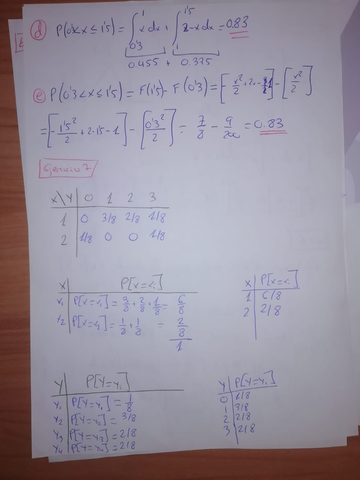 d) P(0'3<x≤1'5) = ∫_{0'3}^{1} x dx + ∫_{1}^{1'5} 2-x dx = 0.83
0.455 + 0.375
e) P(0'3<x≤1'5) = F(1'5) - F(0'3) = [-x²/2 + 2x - 1] - [x²/2]
= [-1'5²/2 + 2·1'5 - 1] - [0'3²/2] = 7/8 - 9/200 = 0.83
Ejercicio 7
x\y 0 1 2 3
1 0 3/8 2/8 1/8
2 1/8 0 0 1/8
x P[x=xi]
x1 P[x=x1] = 3/8 + 2/8 + 1/8 = 6/8
x2 P[x=x2] = 1/8 + 1/8 = 2/8
1
x P[x=xi]
1 6/8
2 2/8
y P[Y=yi]
y1 P[Y=y1] = 1/8
y2 P[Y=y2] = 3/8
y3 P[Y=y3] = 2/8
y4 P[Y=y4] = 2/8
y P[Y=yi]
0 1/8
1 3/8
2 2/8
3 2/8